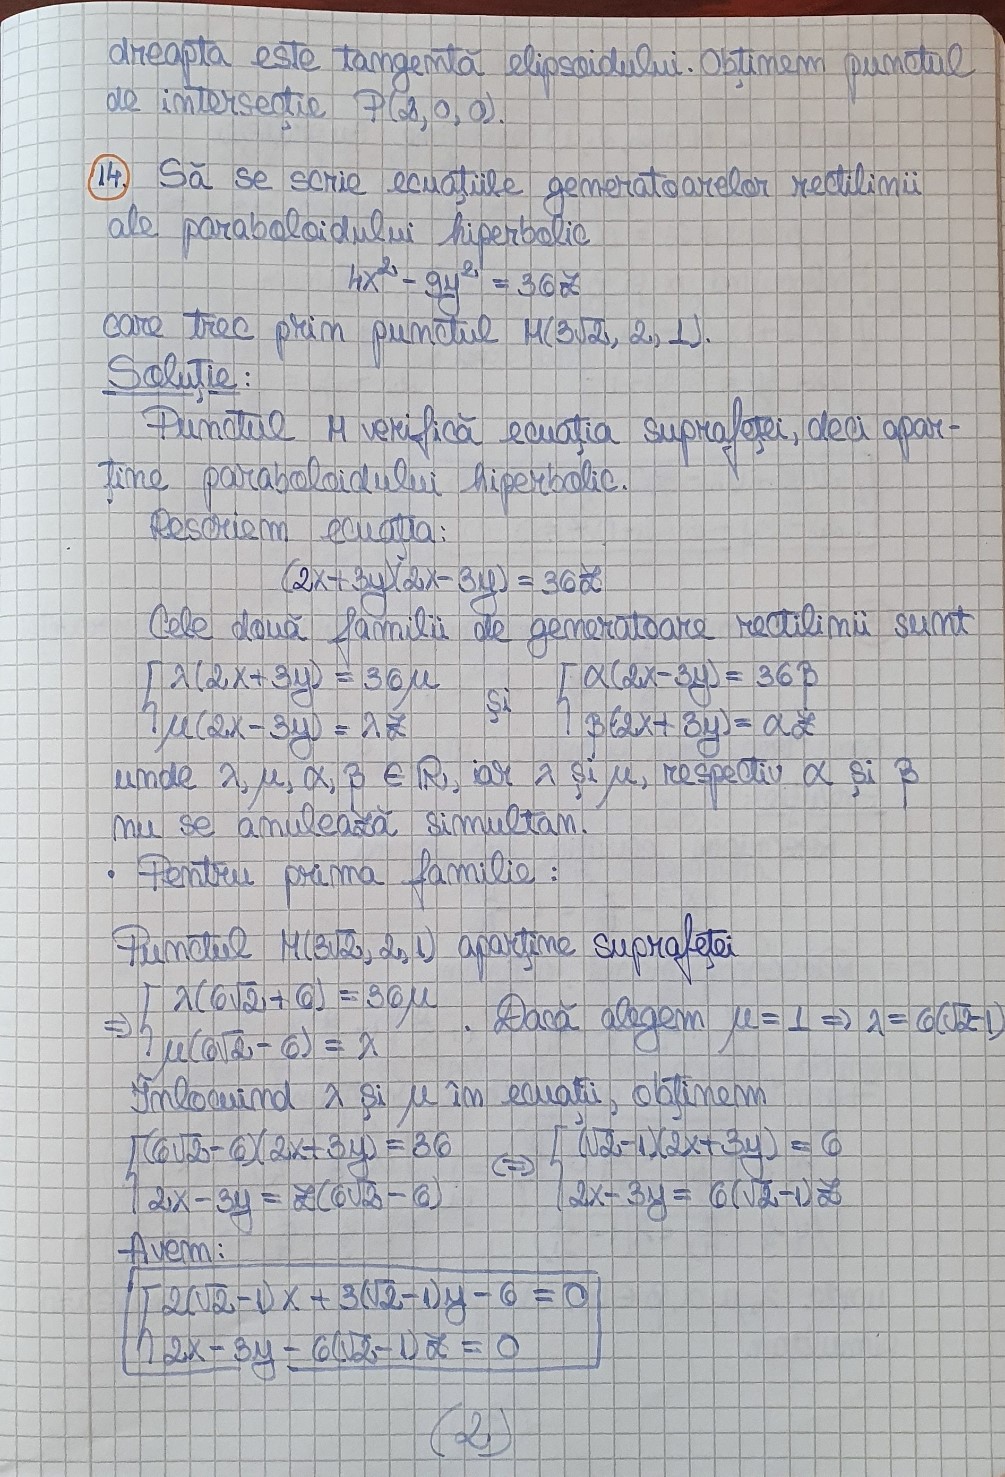 dreapta este tangentă elipsoidului. Obținem punctul
de intersecție P(2, 0, 0).
14. Să se scrie ecuațiile generatoarelor rectilinii
ale paraboloidului hiperbolic
4x² - 9y² = 36z
care trec prin punctul M(3√2, 2, 1).
Soluție:
Punctul M verifică ecuația suprafeței, deci apar-
ține paraboloidului hiperbolic.
Rescriem ecuația:
(2x+3y)(2x-3y) = 36z
Cele două familii de generatoare rectilinii sunt
{ λ(2x+3y) = 36μ și { α(2x-3y) = 36β
μ(2x-3y) = λz β(2x+3y) = αz
unde λ, μ, α, β ∈ ℝ, iar λ și μ, respectiv α și β
nu se anulează simultan.
• Pentru prima familie:
Punctul M(3√2, 2, 1) aparține suprafeței
⇒ { λ(6√2+6) = 36μ . Dacă alegem μ = 1 ⇒ λ = 6(√2-1)
μ(6√2-6) = λ
Înlocuind λ și μ în ecuații, obținem
{ (6√2-6)(2x+3y) = 36 ⇔ { (√2-1)(2x+3y) = 6
2x-3y = z(6√2-6) 2x-3y = 6(√2-1)z
Avem:
{ 2(√2-1)x + 3(√2-1)y - 6 = 0
2x - 3y - 6(√2-1)z = 0
(2)